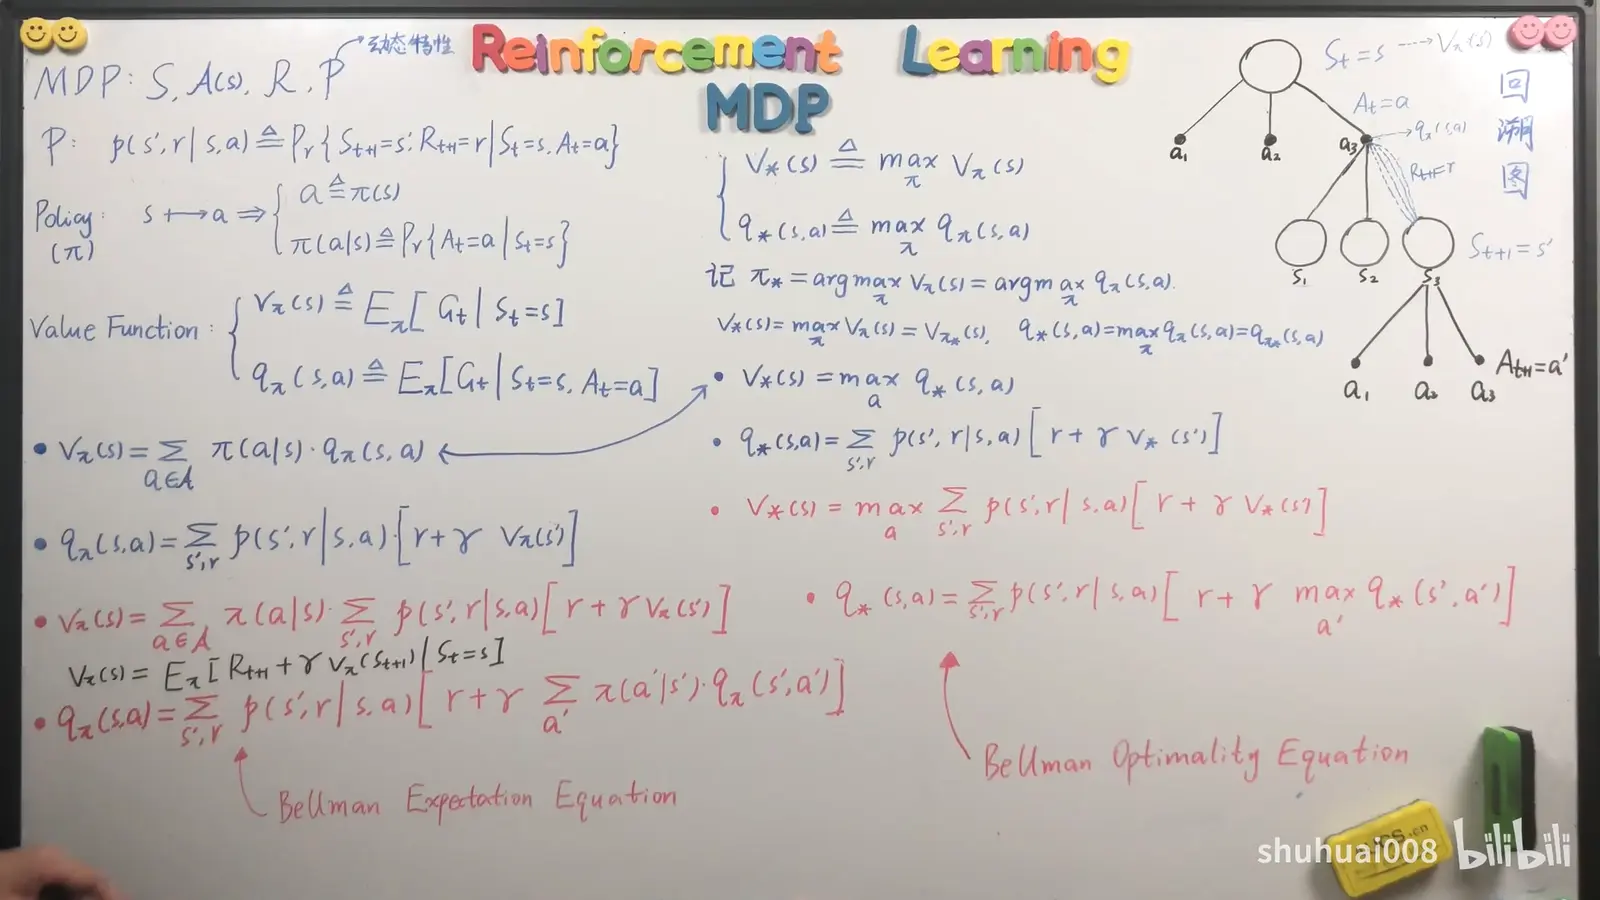 Reinforcement Learning
MDP
MDP: S, A(s), R, P → 动态特性
P: p(s',r|s,a) ≜ Pr{St+1=s', Rt+1=r|St=s, At=a}
Policy: (π) s ⟼ a ⇒ { a ≜ π(s)
π(a|s) ≜ Pr{At=a|St=s}
Value Function: { Vπ(s) ≜ Eπ[Gt|St=s]
qπ(s,a) ≜ Eπ[Gt|St=s, At=a]
• Vπ(s) = Σ a∈A π(a|s)·qπ(s,a)
• qπ(s,a) = Σ s',r p(s',r|s,a)·[r+γ Vπ(s')]
• Vπ(s) = Σ a∈A π(a|s)·Σ s',r p(s',r|s,a)[r+γVπ(s')]
Vπ(s) = Eπ[Rt+1+γVπ(St+1)|St=s]
• qπ(s,a) = Σ s',r p(s',r|s,a)[r+γ Σ a' π(a'|s')·qπ(s',a')]
Bellman Expectation Equation
{ V*(s) ≜ max π Vπ(s)
q*(s,a) ≜ max π qπ(s,a)
记 π* = argmax π Vπ(s) = argmax π qπ(s,a).
V*(s) = max π Vπ(s) = Vπ*(s), q*(s,a) = max π qπ(s,a) = qπ*(s,a)
• V*(s) = max a q*(s,a)
• q*(s,a) = Σ s',r p(s',r|s,a)[r+γV*(s')]
• V*(s) = max a Σ s',r p(s',r|s,a)[r+γV*(s')]
• q*(s,a) = Σ s',r p(s',r|s,a)[r+γ max a' q*(s',a')]
Bellman Optimality Equation
St=s ⇢ Vπ(s')
At=a
a1 a2 a3 → qπ(s,a)
Rt+1=r
St+1=s'
S1 S2 S3
At+1=a'
a1 a2 a3
回溯图
shuhuai008 bilibili